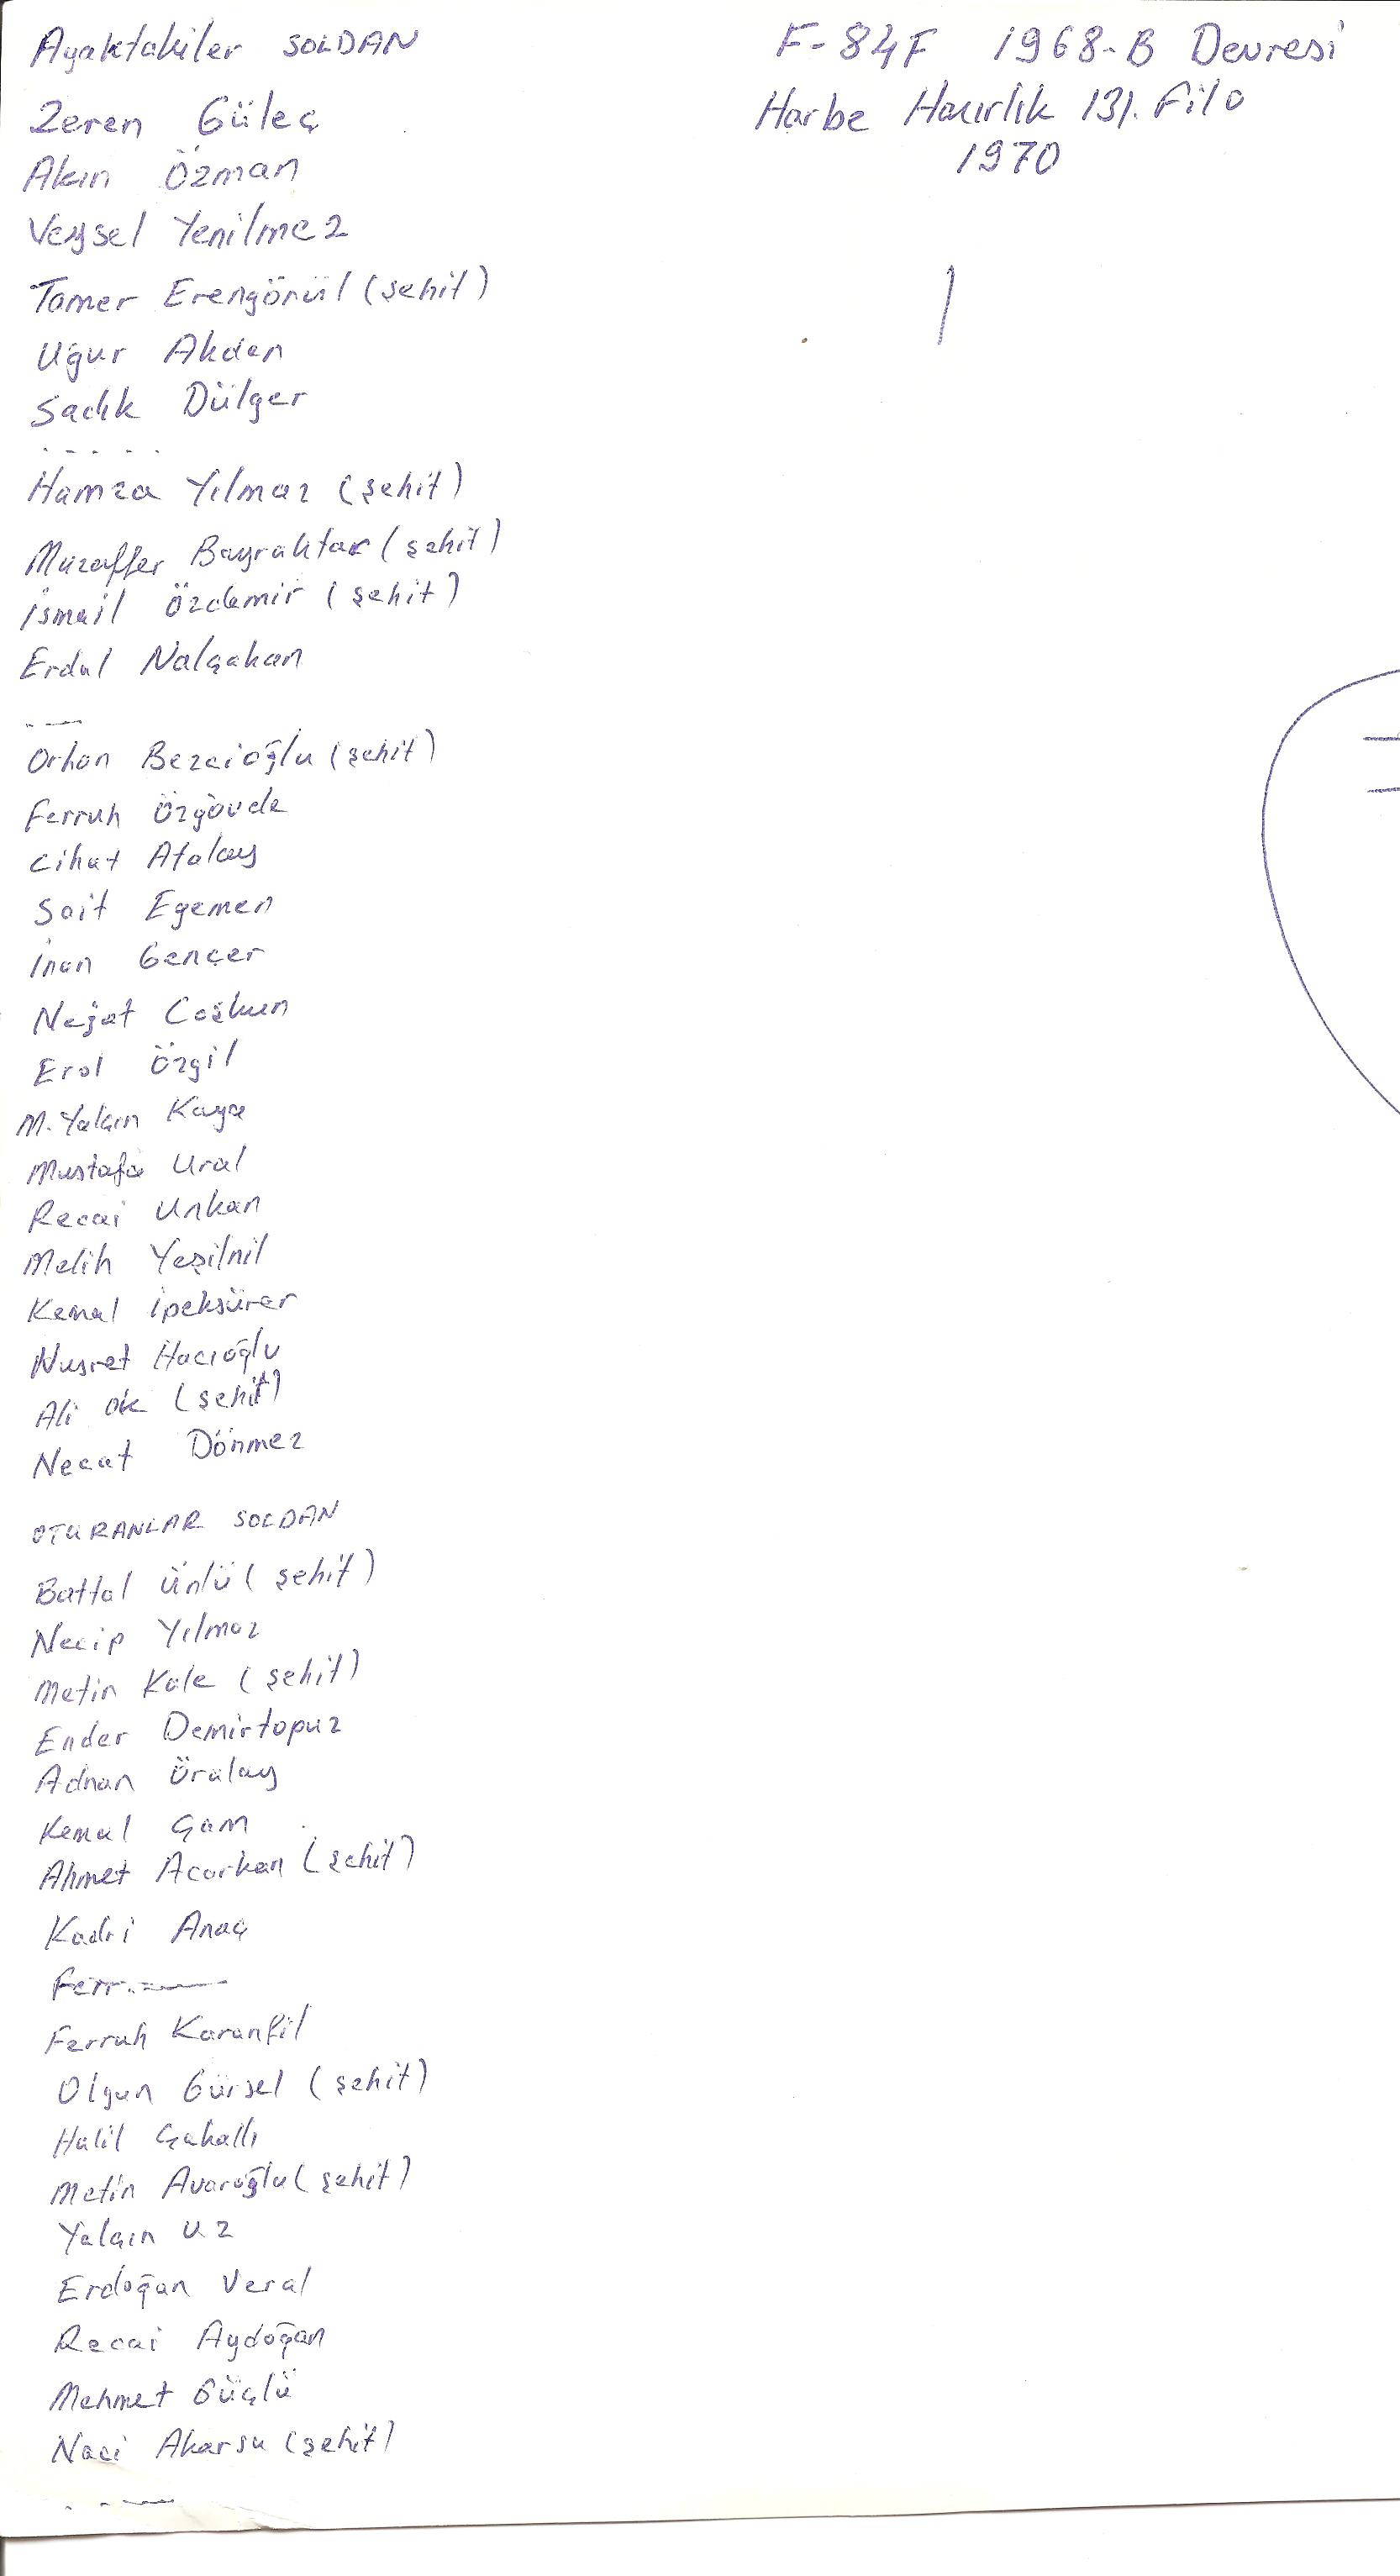 Ayaktakiler SOLDAN
F-84F 1968-B Devresi
Harbe Hazırlık 131. Filo
1970
Zeren Güleç
Akın Özman
Veysel Yenilmez
Tamer Erengönül (şehit)
Uğur Akden
Sadık Dülger
.....
Hamza Yılmaz (şehit)
Muzaffer Bayraktar (şehit)
İsmail Özdemir (şehit)
Erdal Nalçakan
Orhan Bezcioğlu (şehit)
Ferruh Özgövde
Cihat Atalay
Sait Egemen
İnan Gençer
Nejat Coşkun
Erol Özgil
M. Yalçın Kaya
Mustafa Ural
Recai Unkan
Melih Yeşilnil
Kemal İpeksürer
Nusret Hacıoğlu
Ali Ok (şehit)
Necat Dönmez
OTURANLAR SOLDAN
Battal Ünlü (şehit)
Necip Yılmaz
Metin Kale (şehit)
Ender Demirtopuz
Adnan Üralay
Kemal Çam
Ahmet Acarkan (şehit)
Kadri Anaç
Ferr.
Ferruh Karanfil
Olgun Gürsel (şehit)
Halil Çakallı
Metin Avaroğlu (şehit)
Yalçın Uz
Erdoğan Veral
Recai Aydoğan
Mehmet Güçlü
Naci Akarsu (şehit)